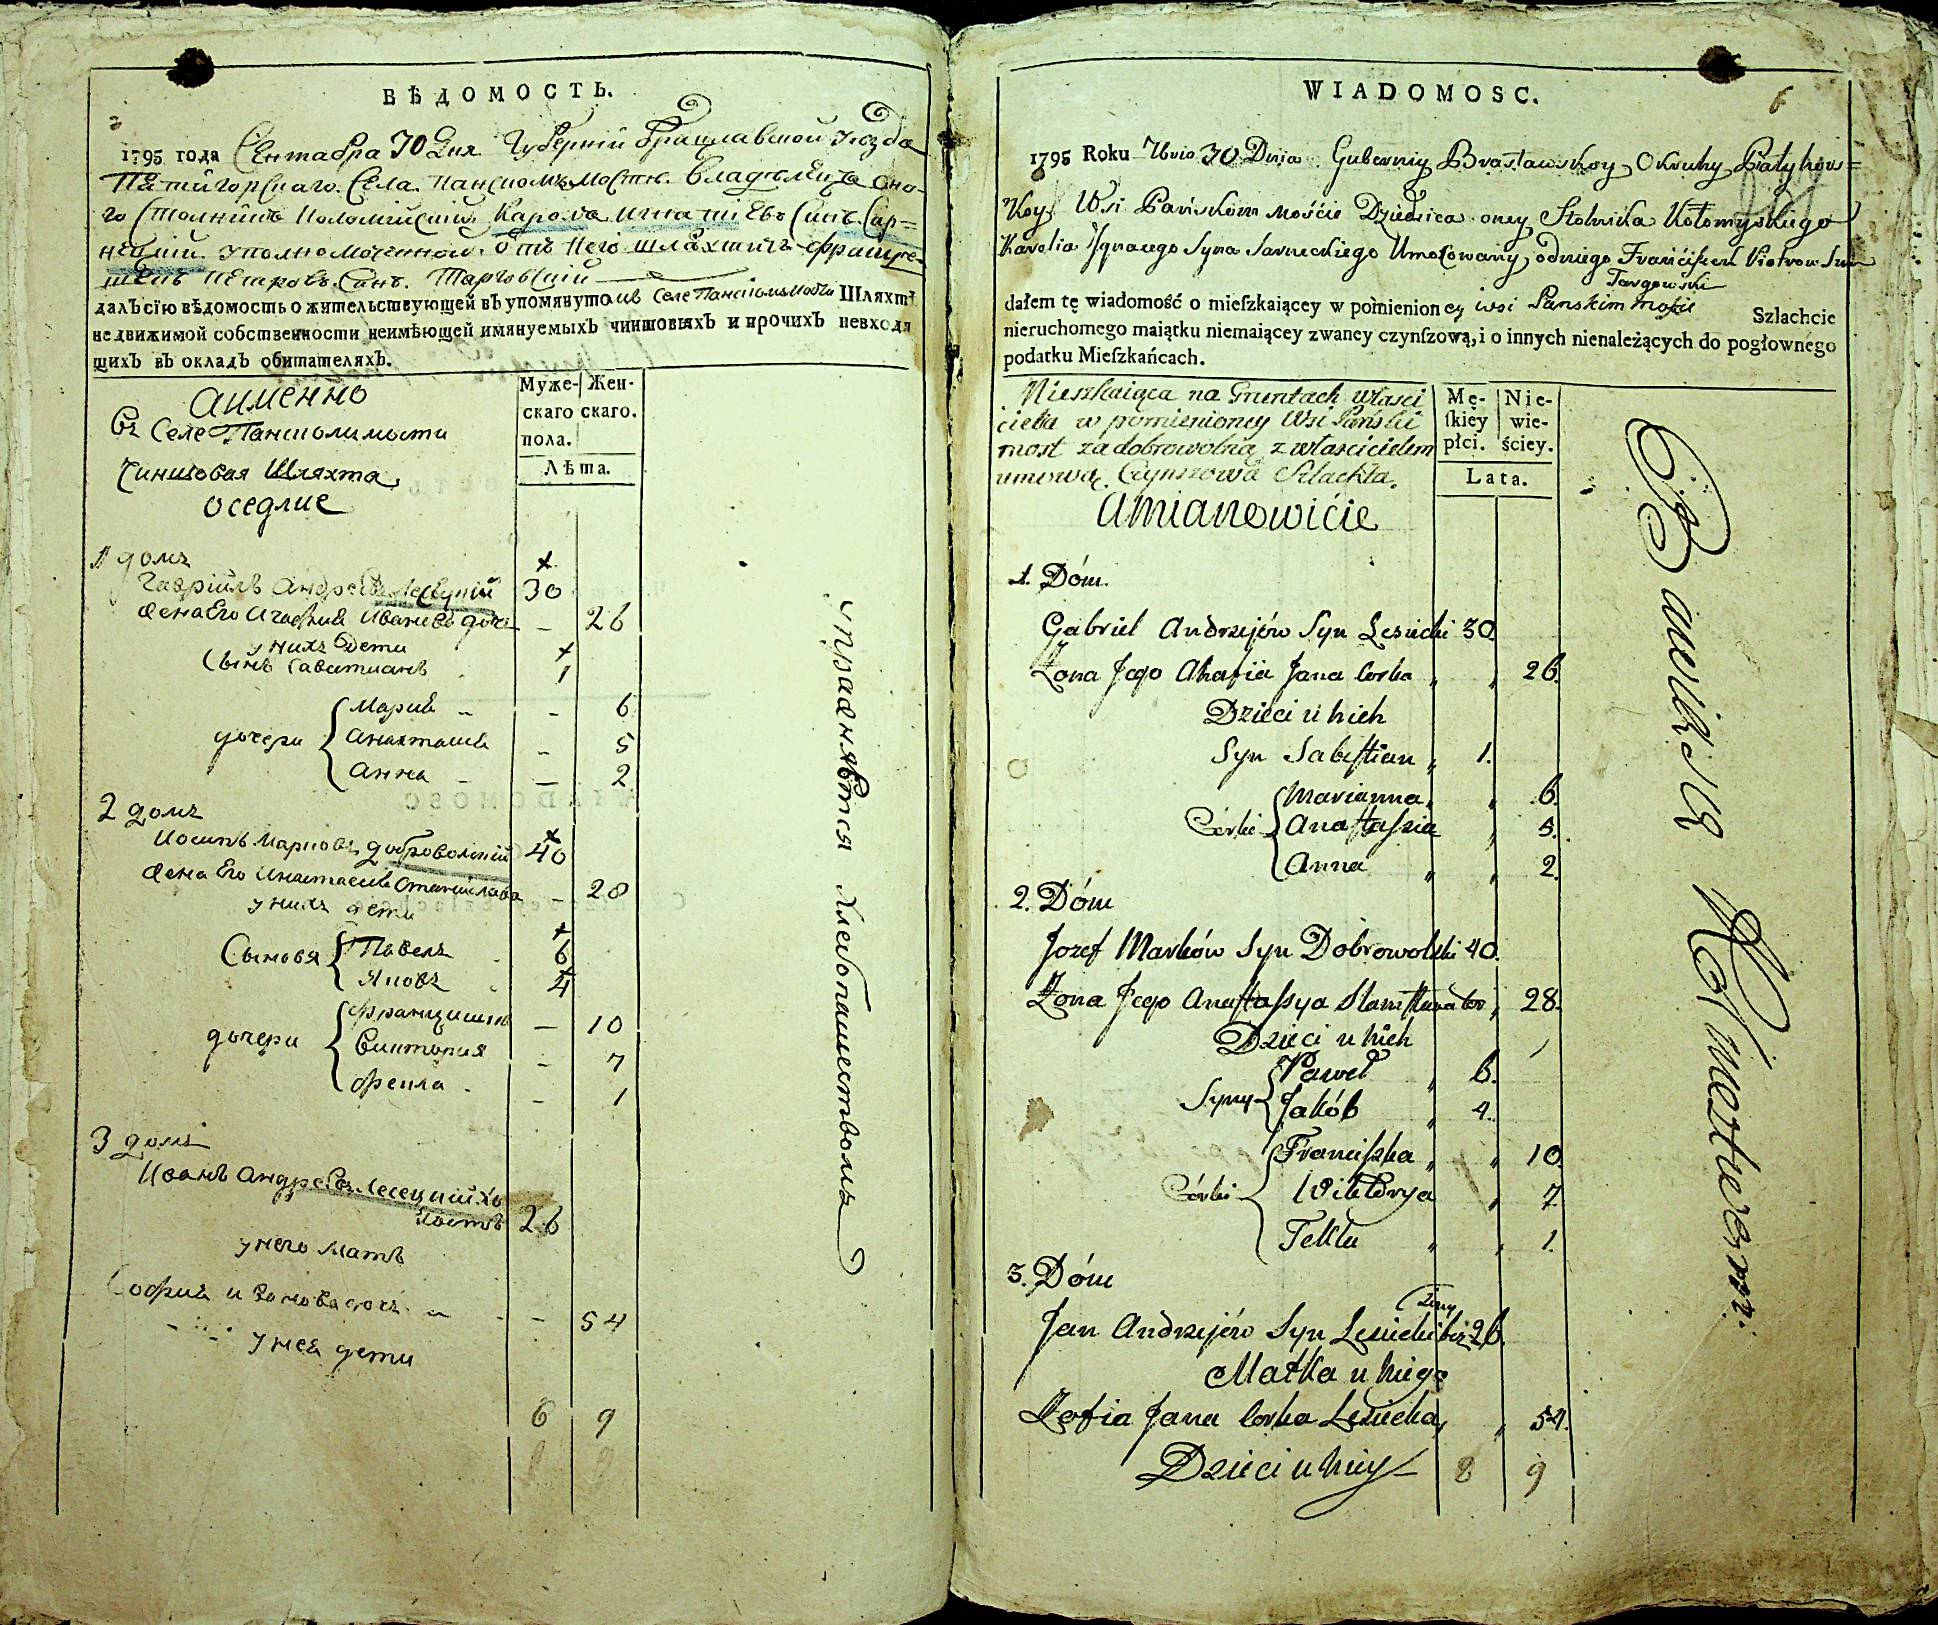 ВѢДОМОСТЬ.
1795 года Сентабра 30 Дня Губерніи Брацлавской уезда
Пятигорскаго Села Панскомъ Мостѣ Владѣлица оно-
го Столникъ Коломийский Кароль Игнатіевъ Синъ Сар=
нецкій уполномоченной отъ него шляхтичъ Францѣ-
шекъ Петровъ Синъ Тарговскій
далъ сію вѣдомость о жительствующей въ упомянутомъ Селе Панскомъ Мосте Шляхтѣ
недвижимой собственности неимѣющей имянуемыхъ чиншовыхъ и прочихъ невходя
щихъ въ окладъ обитателяхъ.
Муже- Жен-
скаго скаго.
пола.
Лѣта.
а именно
Въ Селе Панскомъ мости
Чиншовая Шляхта
оседлие
1 домъ
Гавріилъ Андреевъ Лесецкій 30
жена Его Агафия Иванова дочь — 26
у нихъ дети
Сынъ Савитианъ 1
дочери
Мария — 6
Анастасия — 5
Анна — 2
2 домъ
Иосипъ Марковъ Добровольский 40
жена Его Анастасия Станислава — 28
у нихъ дети
Сыновя
Павелъ 6
Яковъ 4
дочери
Францишка — 10
Виктория — 7
Фекла — 1
3 домъ
Иванъ Андреевъ Лесецкий хо
лостъ 26
у него мать
София Иванова дочь — 54
у нея дети
6 9
упражняется Хлебопашествомъ
WIADOMOSC.
6
1795 Roku 7bris 30 Dnia Guberniy Brasławskoy Okruhy Piatyhors=
koy Wsi Pańskim moście Dziedzica oney Stolnika Kołomyskiego
Karolia Ignacego Syna Sarneckiego Umocowany od niego Franciszek Piotrow Syn
Targowski
dałem tę wiadomość o mieſzkaiącey w pomienioney wsi Panskim moscie Szlachcie
nieruchomego maiątku niemaiącey zwaney czynſzową, i o innych nienależących do pogłownego
podatku Mieſzkańcach.
Mieszkaiąca na Gruntach właści
ciela w pomienioney Wsi Pański
most za dobrowolną z właścicielem
umową Czynszowa Szlachta.
Amianowićie
Mę- Nie-
ſkiey wie-
płci. ściey.
Lata.
1. Dóm.
Gabriel Andrzejów Syn Lesiecki 30
Żona Jego Ahafia Jana Corka „ „ 26.
Dzieci u nich
Syn Sabeſtian „ 1.
Córki
Marianna „ „ 6.
Anaſtaſzia „ 5.
Anna „ „ 2.
2. Dóm
Jozef Marków Syn Dobrowolski 40.
Żona Jego Anaſtaſya Staniſława Cor „ 28.
Dzieci u nich
Syny
Paweł „ 6.
Jakób „ 4.
Córki
Franciſzka „ „ 10.
Wiktorya „ 7.
Tekla „ „ 1.
3. Dóm
Jan Andrzejów Syn Lesiecki bez żony 26.
Matka u niego
Zofia Jana Corka Lesiecka, „ 54.
Dzieci u niey 8 9